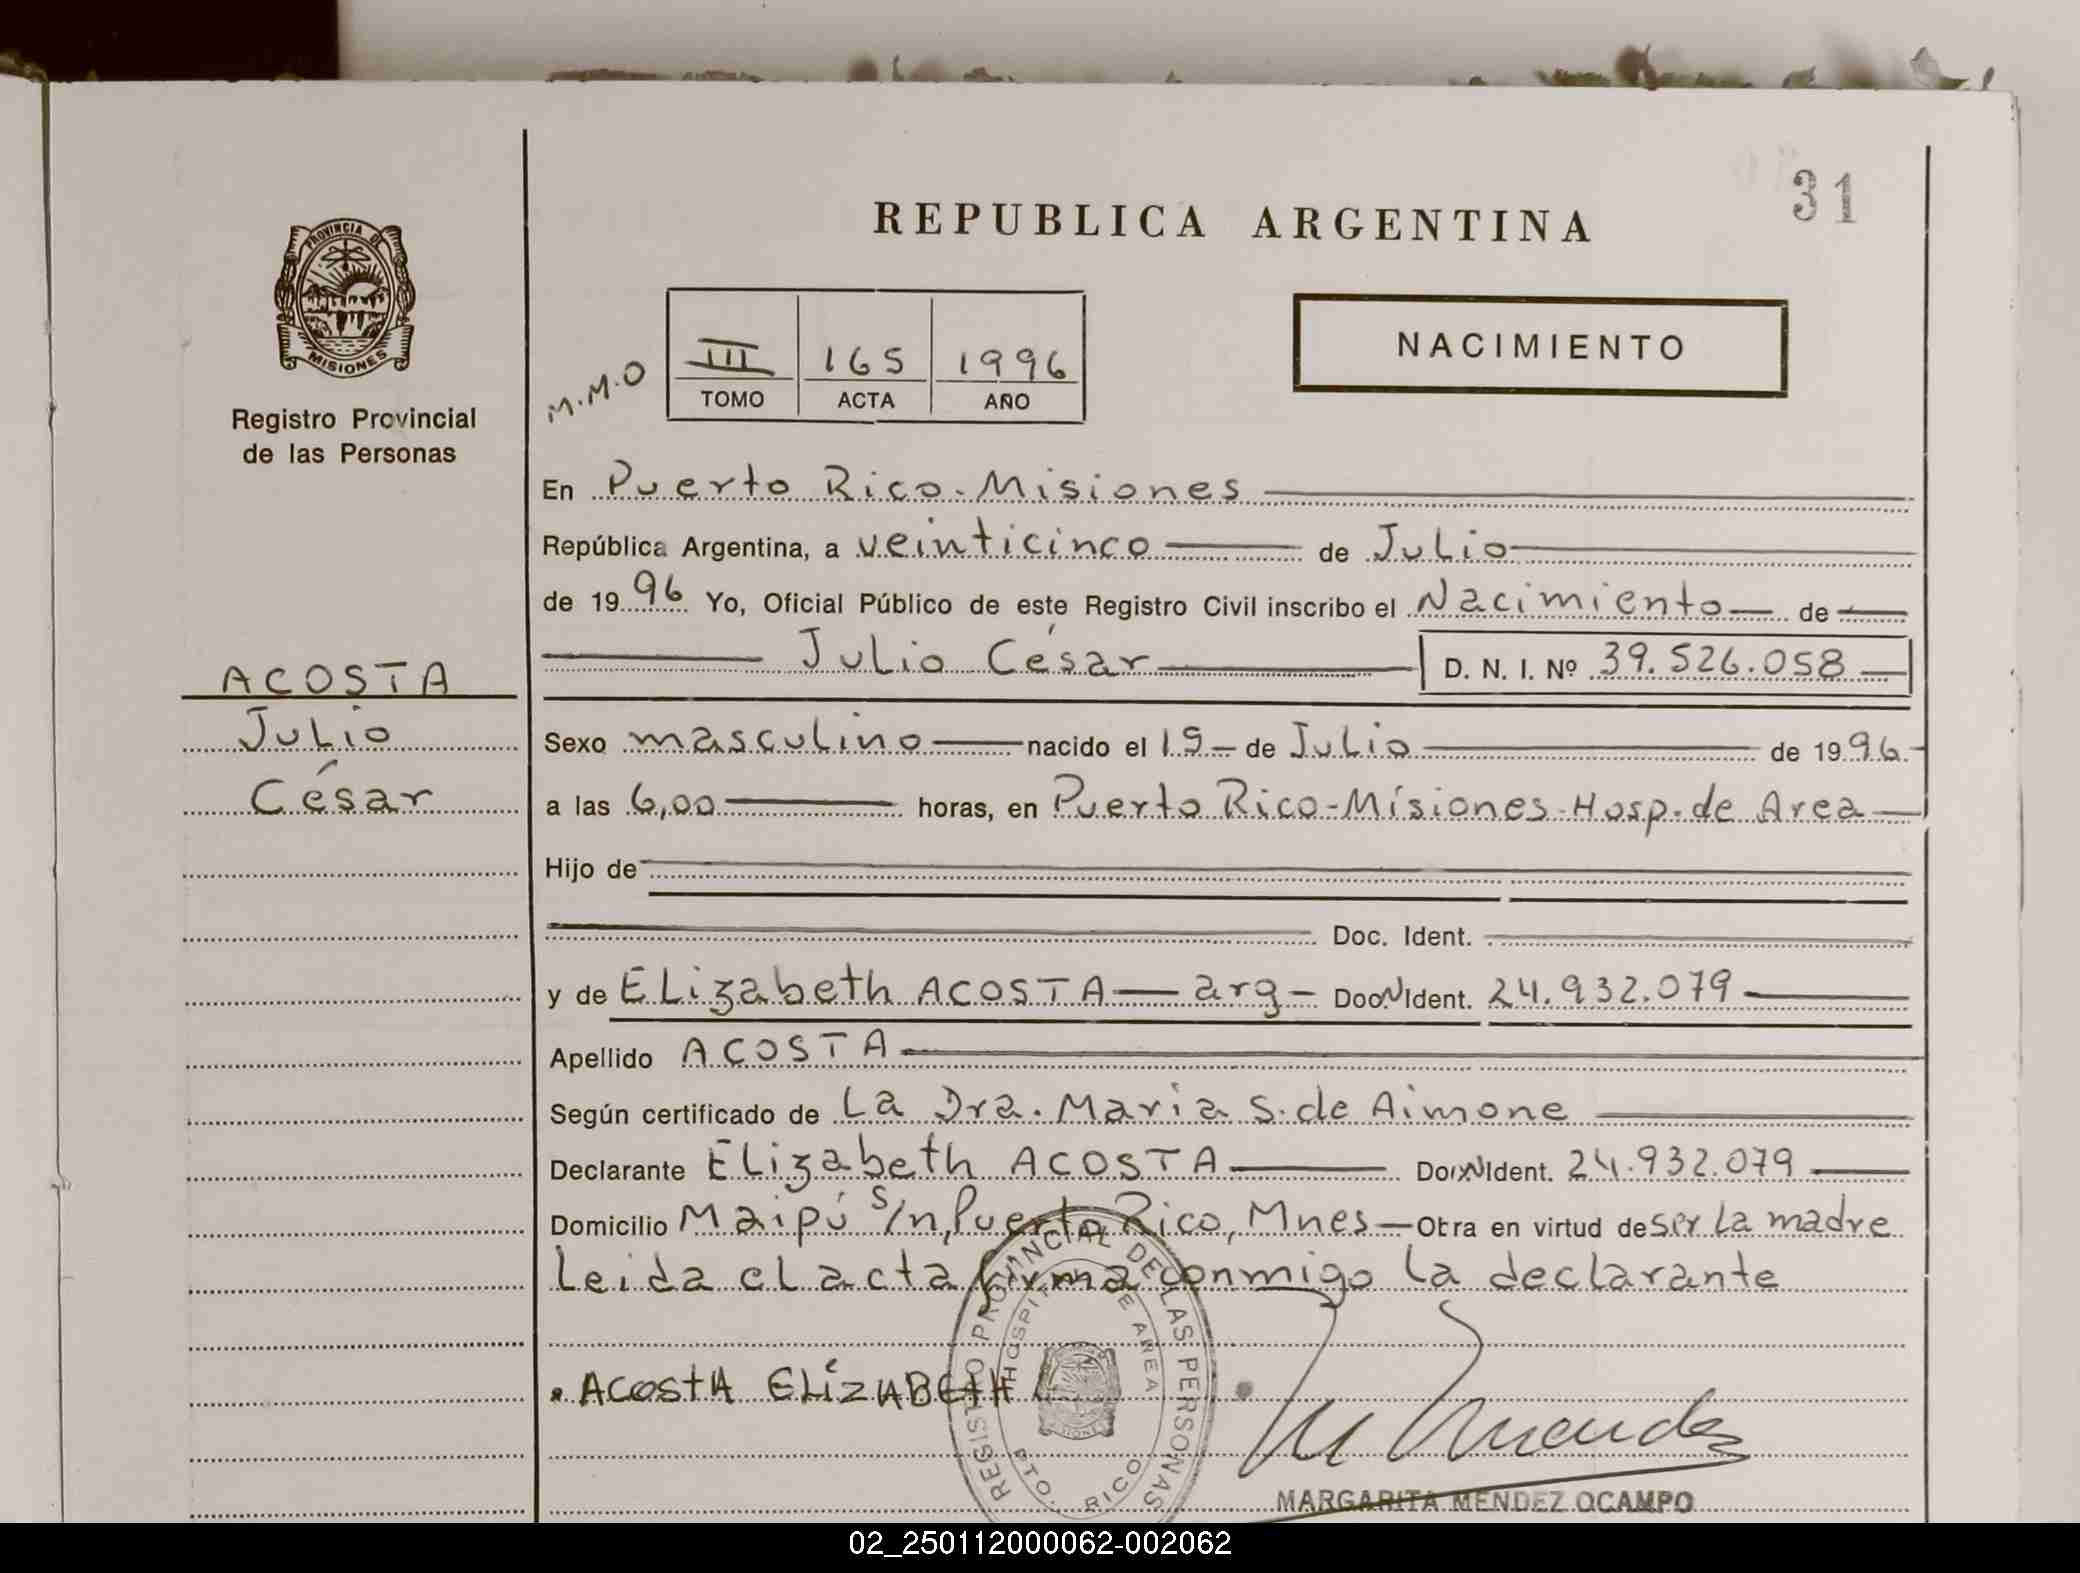 31
REPUBLICA ARGENTINA
PROVINCIA DE
MISIONES
Registro Provincial
de las Personas
M.M.O
III 165 1996
TOMO ACTA AÑO
NACIMIENTO
En Puerto Rico-Misiones
República Argentina, a veinticinco de Julio
de 1996 Yo, Oficial Público de este Registro Civil inscribo el Nacimiento de
Julio César D. N. I. Nº 39.526.058
ACOSTA
Julio
César
Sexo masculino nacido el 19 de Julio de 1996
a las 6,00 horas, en Puerto Rico-Misiones-Hosp. de Area
Hijo de
Doc. Ident.
y de Elizabeth ACOSTA arg Doc. Ident. 24.932.079
Apellido ACOSTA
Según certificado de La Dra. Maria S. de Aimone
Declarante Elizabeth ACOSTA Ident. 24.932.079
Domicilio Maipú s/n, Puerto Rico, Mnes Obra en virtud de ser la madre
Leida el acta firma conmigo la declarante
ACOSTA ELIZABETH
REGISTRO PROVINCIAL DE LAS PERSONAS
HOSPITAL DE AREA
PTO. RICO
MARGARITA MENDEZ OCAMPO
02_250112000062-002062